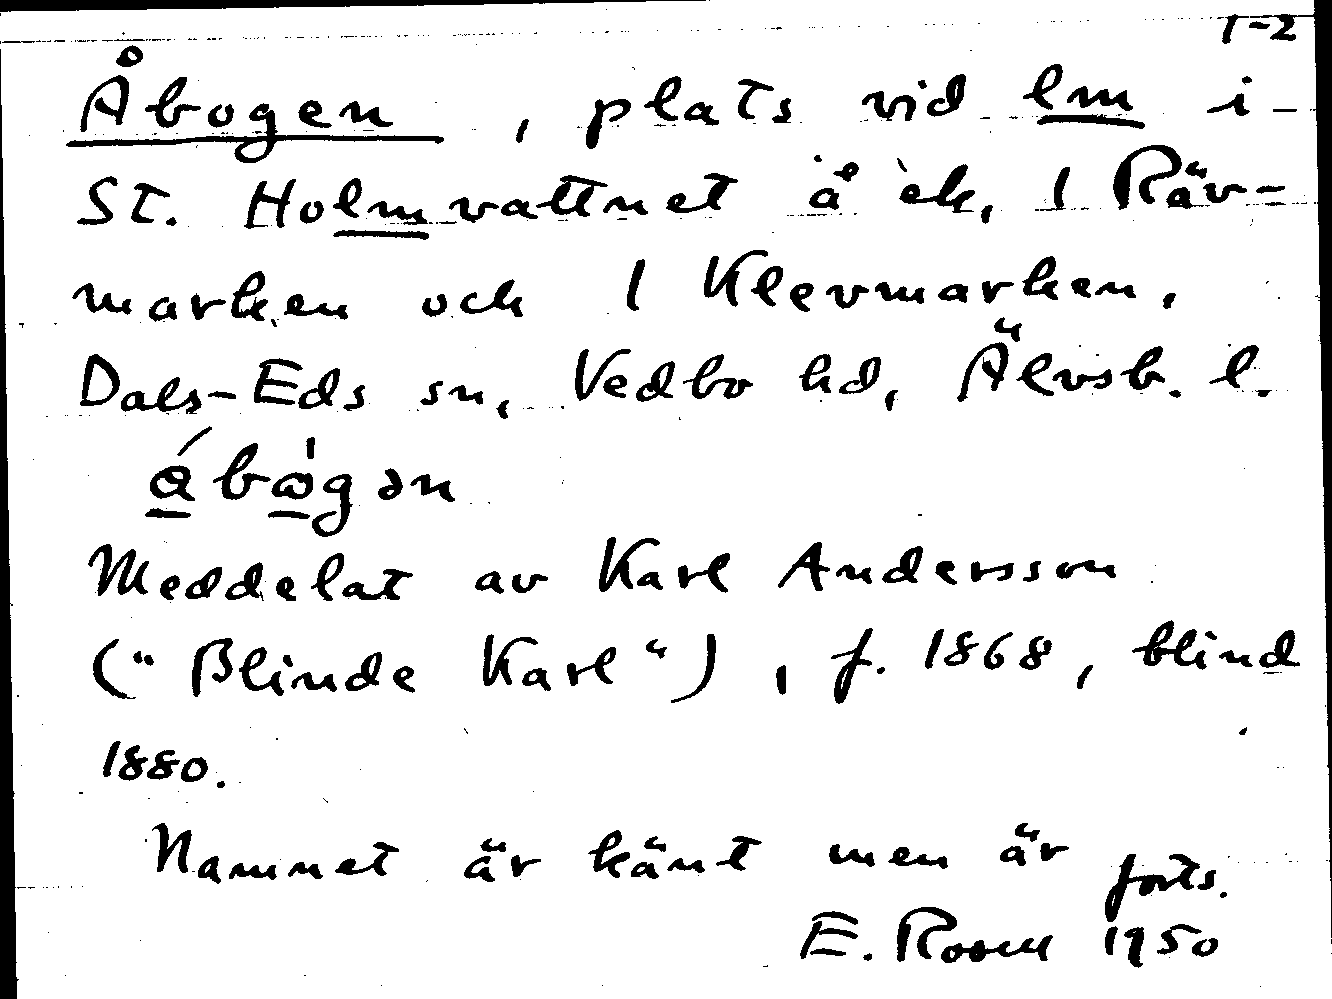 1-2
Åbogen, plats vid lm i
St. Holmvattnet å ek, 1 Räv-
marken och 1 Klevmarken,
Dals-Eds sn, Vedbo hd, Älvsb. l.
åbɷ̀gən
Meddelat av Karl Andersson
("Blinde Karl"), f. 1868, blind
1880.
Namnet är känt men är forts.
E. Rosell 1950